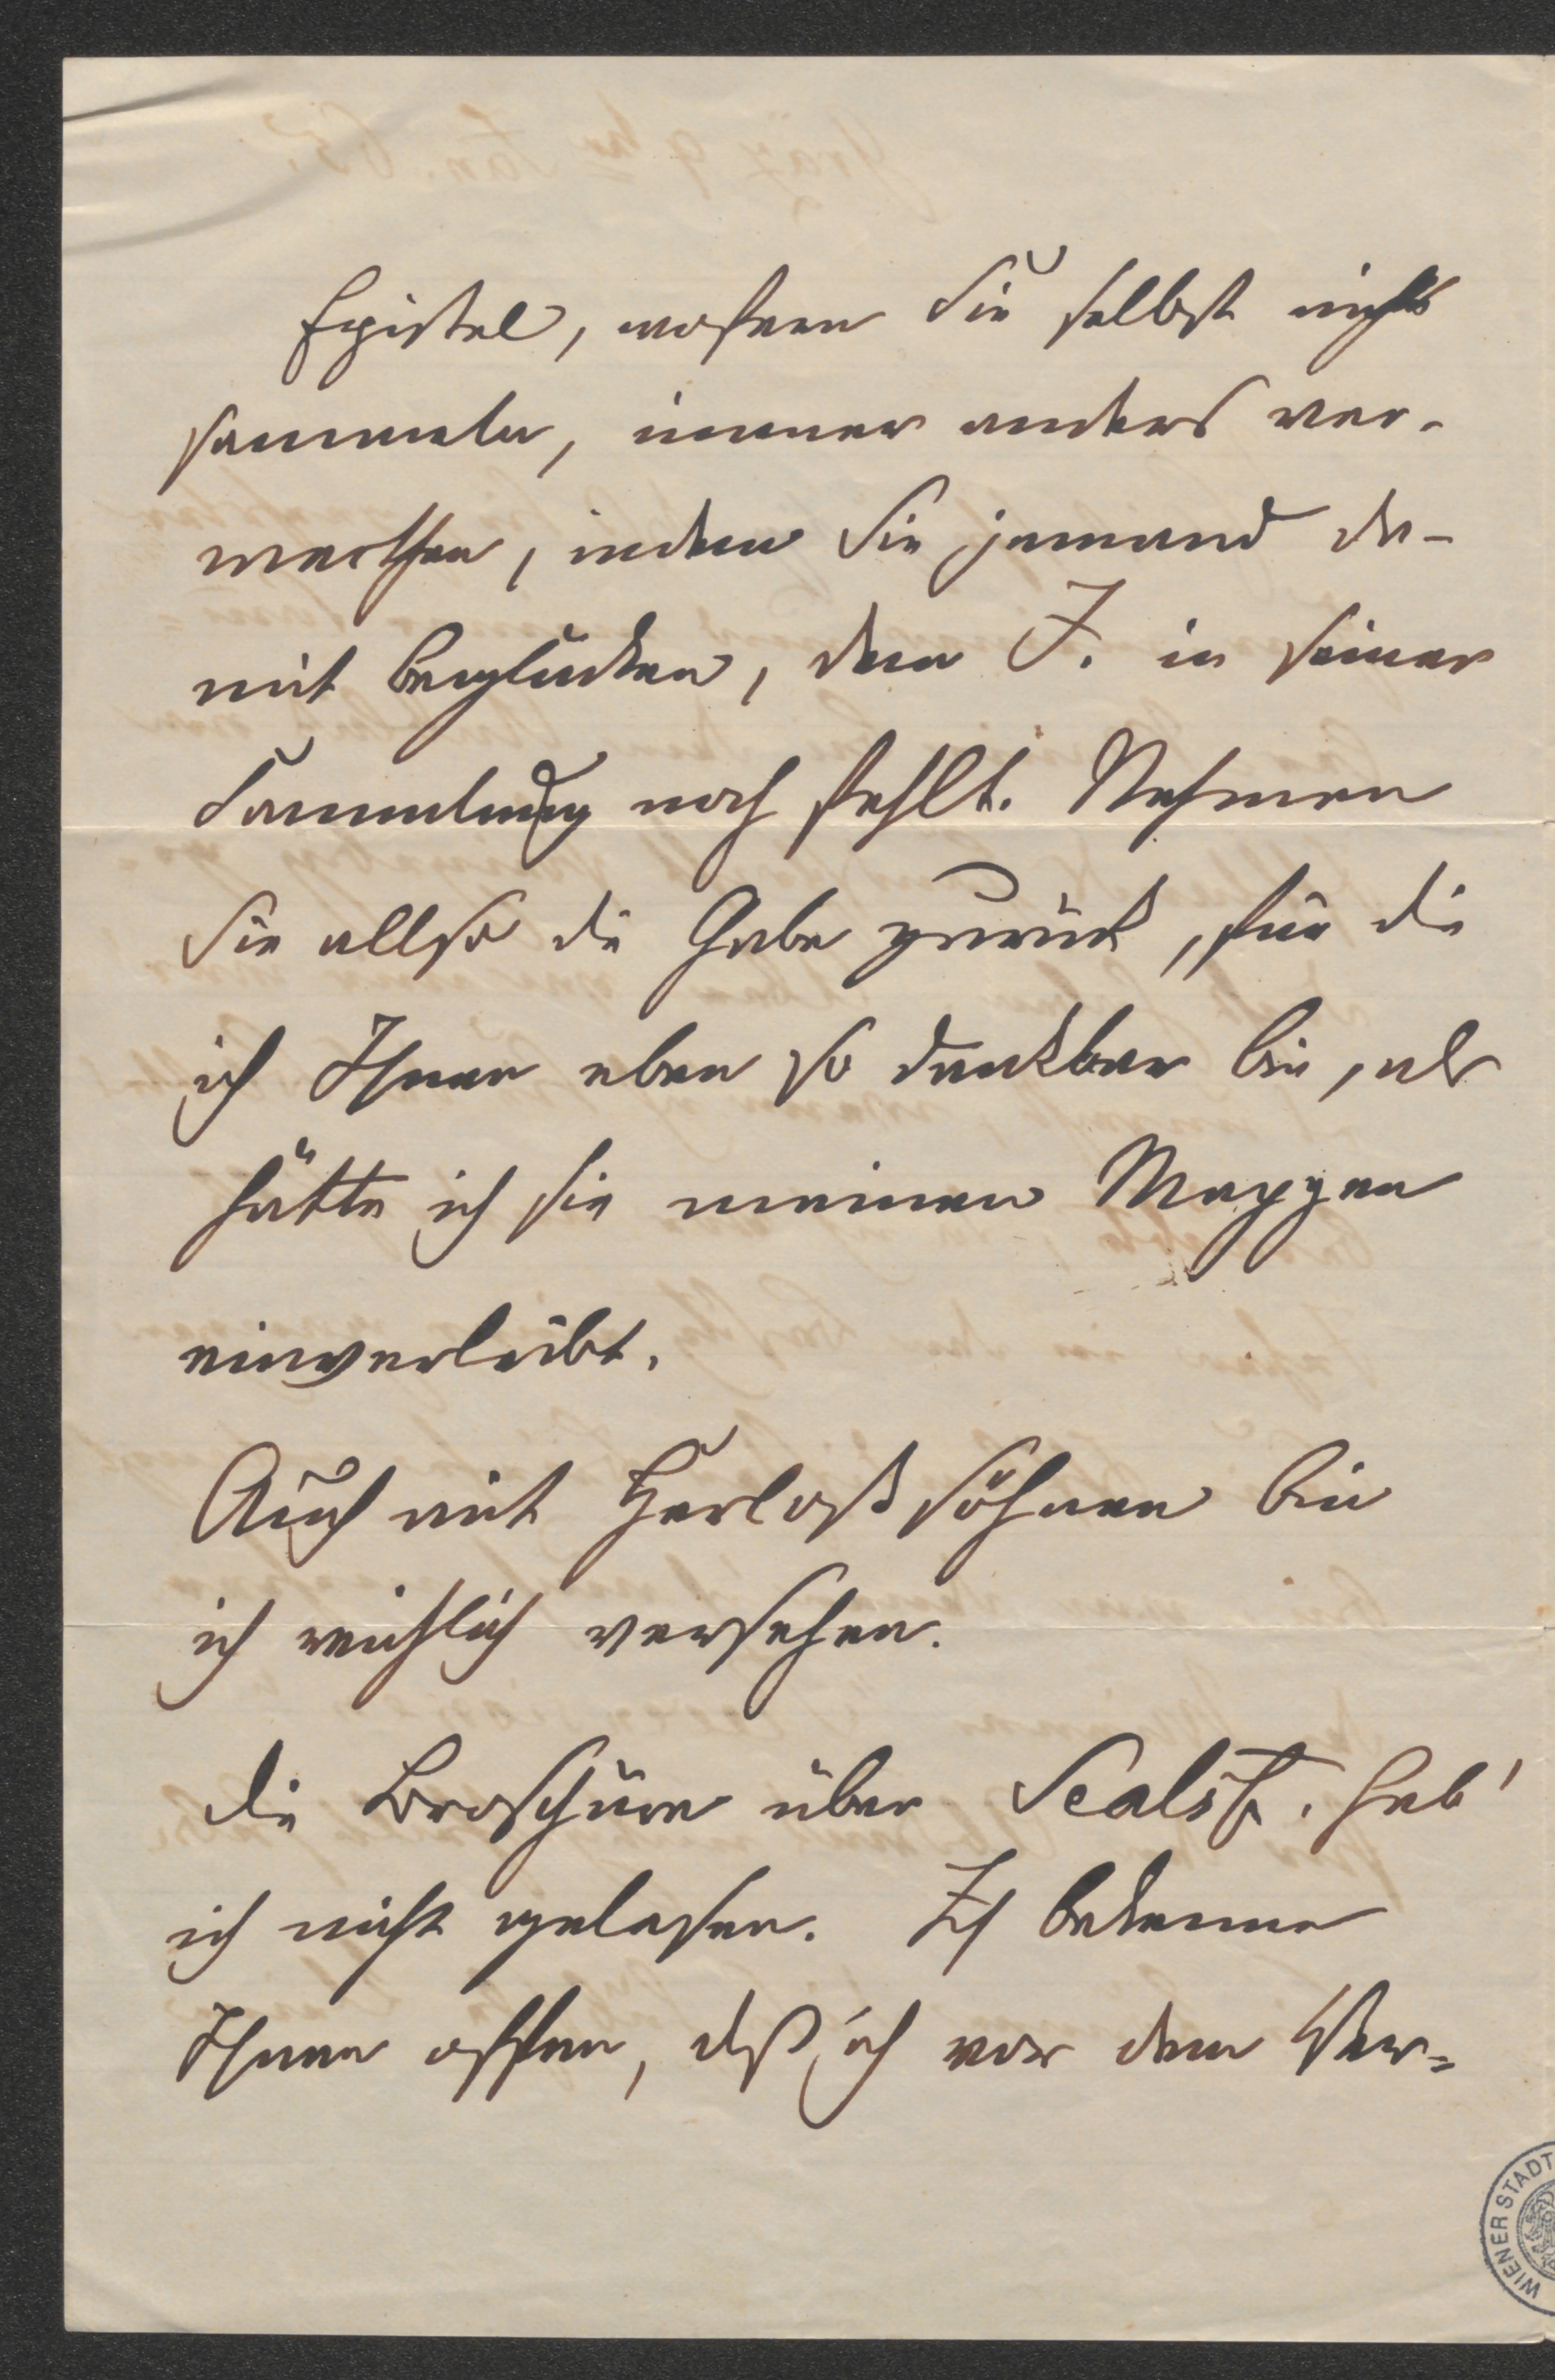 Epistel, wofern Sie selbst nicht
sammeln, immer anders ver-
werthen, indem Sie jemand da-
mit beglücken, dem J. in seiner
Sammlung noch fehlt. Nehmen
Sie allso die Gabe zurück, für die
ich Ihnen eben so dankbar bin, als
hätte ich sie meinen Mappen
einverleibt.
Auch mit Herloßsöhnen bin
ich reichlich versehen.
Die Broschüre über Sealsf. hab'
ich nicht gelesen. Ich bekenne
Ihnen offen, daß ich vor dem Ver=
WIENER STADT